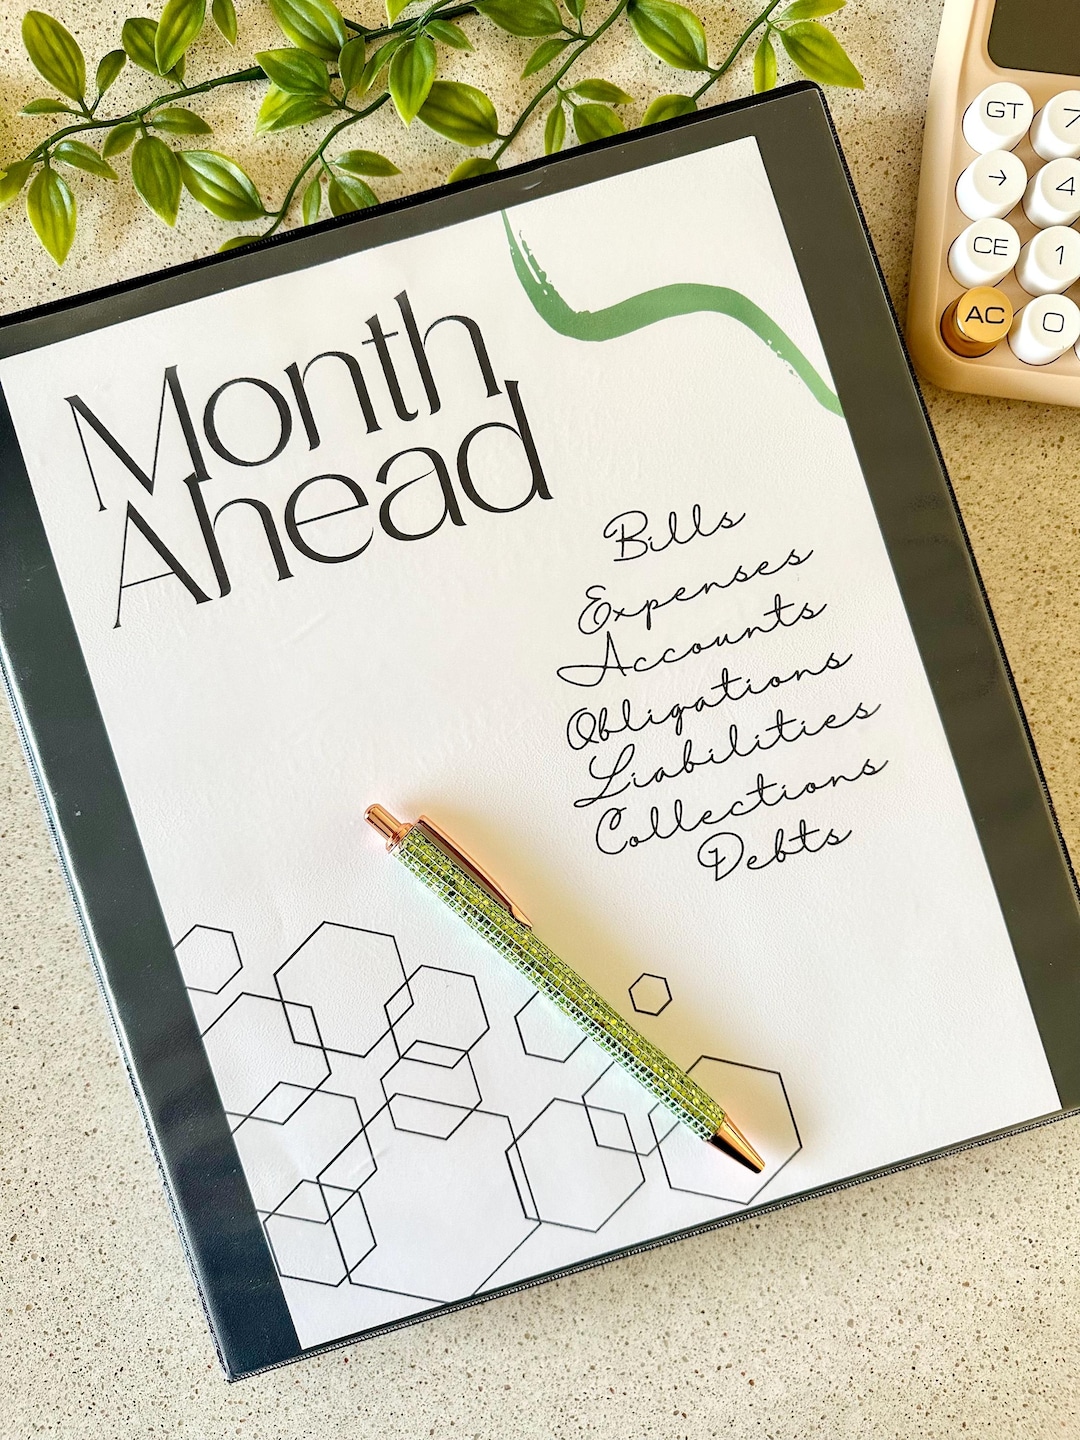 Month
Ahead
Bills
Expenses
Accounts
Obligations
Liabilities
Collections
Debts
GT 7
→ 4
CE 1
AC 0